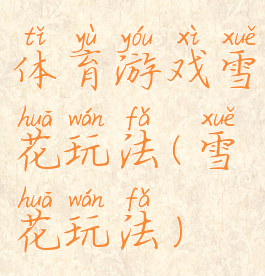 tǐ yù yóu xì xuě
体育游戏雪
huā wán fǎ xuě
花玩法(雪
huā wán fǎ
花玩法)